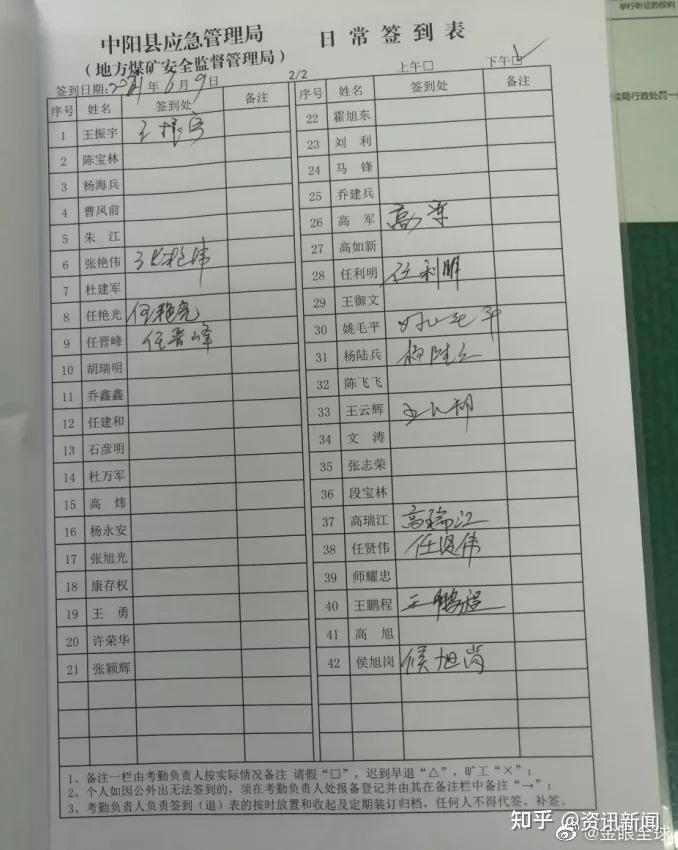 举行听证的权利
中阳县应急管理局
（地方煤矿安全监督管理局）
日常签到表
签到日期:2021年6月9日
2/2
上午□
下午□✓
序号 姓名 签到处 备注
1 王振宇 王振宇
2 陈宝林
3 杨海兵
4 曹凤前
5 朱江
6 张艳伟 张艳伟
7 杜建军
8 任艳光 任艳光
9 任晋峰 任晋峰
10 胡瑞明
11 乔鑫鑫
12 任建和
13 石彦明
14 杜万军
15 高炜
16 杨永安
17 张旭光
18 康存权
19 王勇
20 许荣华
21 张颖辉
序号 姓名 签到处 备注
22 霍旭东
23 刘利
24 马锋
25 乔建兵
26 高军 高军
27 高如新
28 任利明 任利明
29 王御文
30 姚毛平 姚毛平
31 杨陆兵 杨陆兵
32 陈飞飞
33 王云辉
34 文涛
35 张志荣
36 段宝林
37 高瑞江 高瑞江
38 任贤伟 任贤伟
39 师耀忠
40 王鹏程 王鹏程
41 高旭
42 侯旭岗 侯旭岗
1、备注一栏由考勤负责人按实际情况备注 请假“□”，迟到早退“△”，旷工“×”；
2、个人如因公外出无法签到的，须在考勤负责人处报备登记并由其在备注栏中备注“→”；
3、考勤负责人负责签到（退）表的按时放置和收起及定期装订归档，任何人不得代签、补签。
知乎 @资讯新闻
@金眼全球